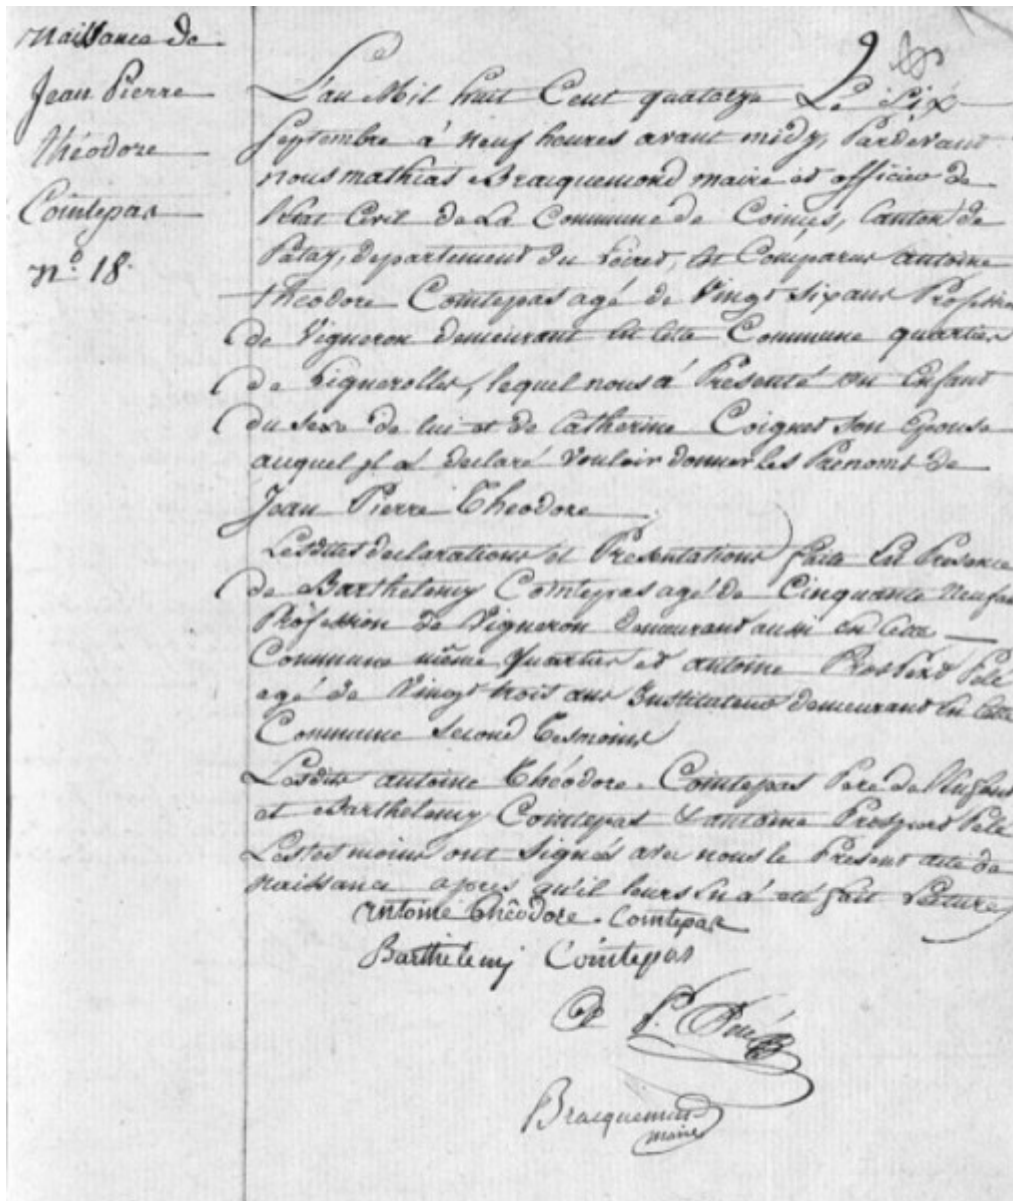 Naissance de
Jean Pierre
théodore
Cointepas
n.º 18.
L'an Mil huit Cent quatorze Le Six
Septembre à neuf heures avant midy, Pardevant
nous mathias Bracquemond maire et officier de
l'état Civil de La Commune de Coinces, Canton de
Patay, departement du Loiret, est Comparu antoine
théodore Cointepas agé de Vingt six ans Profession
de Vigneron demeurant en cete Commune quartier
de Lignerolles, lequel nous a Présenté un Enfant
du sexe de lui et de Catherine Coignet son Epouse
auquel jl a declaré Vouloir donner les Prenoms de
Jean Pierre Théodore
Lesdites declarations et Presentations faite En Presence
de Barthelemy Cointepas agé de Cinquante neuf ans
Profession de Vigneron demeurant aussi en Cette
Commune même quartier et antoine Prospert Pelé
agé de Vingt trois ans Instituteur demeurant En Cette
Commune second Tesmoins
Lesdits antoine Théodore Cointepas Pere de l'Enfant
et Barthelemy Cointepas & antoine Prospert Pelé
Les tesmoins ont Signés avec nous le Present acte de
naissance apres qu'il leurs En a été fait Lecture
Antoine théodore. Cointepas
Barthelemj Cointepas
P. Pelé
Bracquemond
maire